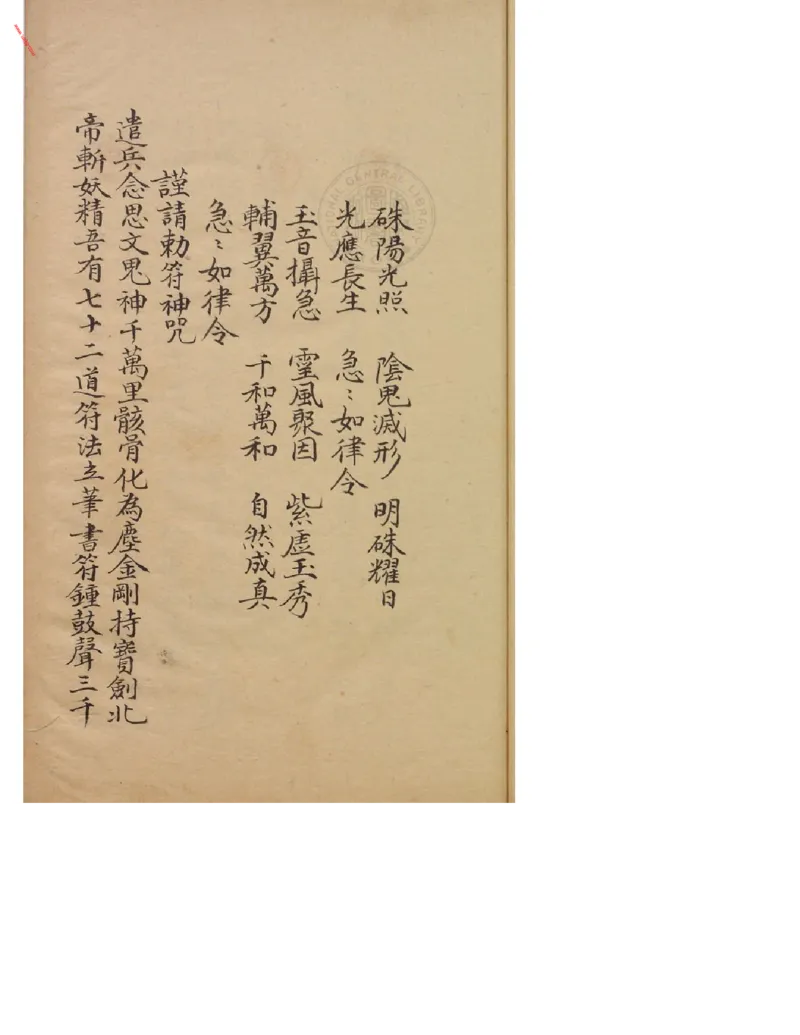 硃陽光照 陰鬼滅形 明硃耀日
光應長生 急〻如律令
玉音攝急 靈風聚因 紫虛玉秀
輔翼萬方 千和萬和 自然成真
急〻如律令
謹請勅符神咒
遣兵念思文鬼神千萬里骸骨化為塵金剛持寶劍北
帝斬妖精吾有七十二道符法立筆書符鍾鼓聲三千
NATIONAL CENTRAL LIBRARY